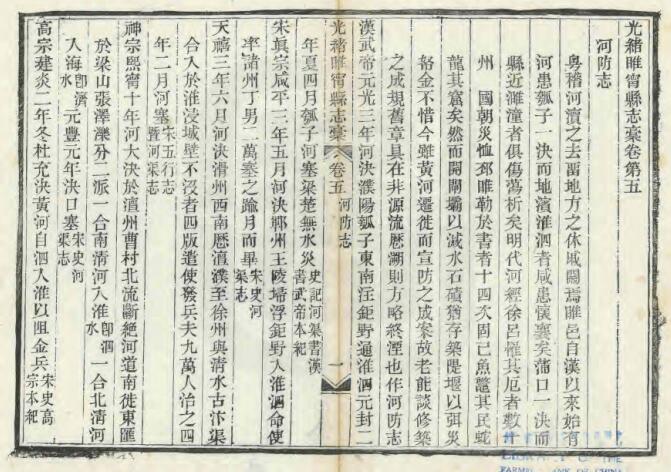 光緒睢寧縣志稾卷第五
河防志
粤稽河瀆之去畱地方之休戚關焉睢邑自漢以來始有
河患瓠子一決而地濱淮泗者咸患懷襄矣蒲口一決而
縣近濉潼者俱傷蕩析矣明代河經徐呂罹其厄者數十
州 國朝災恤邳睢勒於書者十四次固已魚鼈其民蛇
龍其窟矣然而開閘壩以減水石磧猶存築隄堰以弭災
帑金不惜今雖黃河遷徙而宣防之成案故老能談修築
之成規舊章具在非源流歷溯則方略終湮也作河防志
漢武帝元光三年河決濮陽瓠子東南注鉅野通淮泗元封二
光緒睢寧縣志稾 卷五 河防志 一
年夏四月瓠子河塞梁楚無水災史記河渠書漢書武帝本紀
宋真宗咸平三年五月河決鄆州王陵埽浮鉅野入淮泗命使
率諸州丁男二萬塞之踰月而畢宋史河渠志
天禧三年六月河決滑州西南歷澶濮至徐州與清水古汴渠
合入於淮浸城壁不沒者四版遣使發兵夫九萬人治之四
年二月河塞宋五行志暨河渠志
神宗熙甯十年河大決於澶州曹村北流斷絕河道南徙東匯
於梁山張澤濼分二派一合南清河入淮卽泗水一合北清河
入海卽濟水元豐元年決口塞宋史河渠志
高宗建炎二年冬杜充決黃河自泗入淮以阻金兵宋史高宗本紀
LIBRARY OF THE
FARMERS BANK OF CHINA